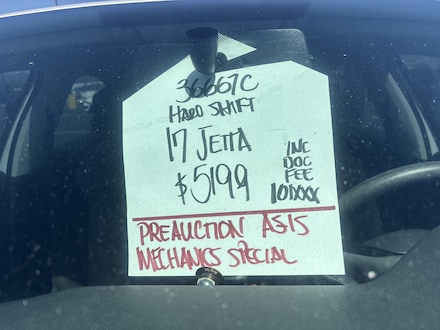 36667C
HARD SHIFT
17 JETTA
$5199
INC
DOC
FEE
101XXX
PREAUCTION AS-IS
MECHANICS SPECIAL